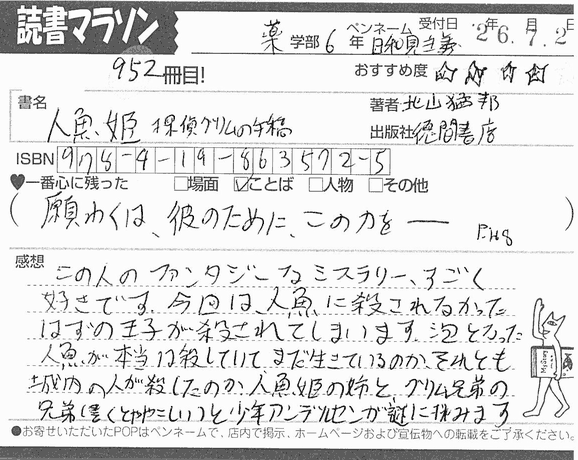 読書マラソン
薬 学部 6 年 ペンネーム 日和見主義 受付日 '26.年7.月2日
952冊目!
おすすめ度 ☆☆☆☆
書名 人魚姫 探偵グリムの手稿
著者: 北山猛邦
出版社 徳間書店
ISBN 978-4-19-863572-5
♥一番心に残った □場面 ☑ことば □人物 □その他
(願わくは、彼のために、この力を―― P.148)
感想
この人のファンタジーなミステリー、すごく
好きです。今回は、人魚に殺されなかった
はずの王子が殺されてしまいます。泡となった
人魚が本当は殺していて、まだ生きているのか、それとも
城内の人が殺したのか、人魚姫の姉と、グリム兄弟の
兄弟(書くとややこしい)と少年アンデルセンが謎に挑みます
●お寄せいただいたPOPはペンネームで、店内で掲示、ホームページおよび宣伝物への転載をご了承ください。